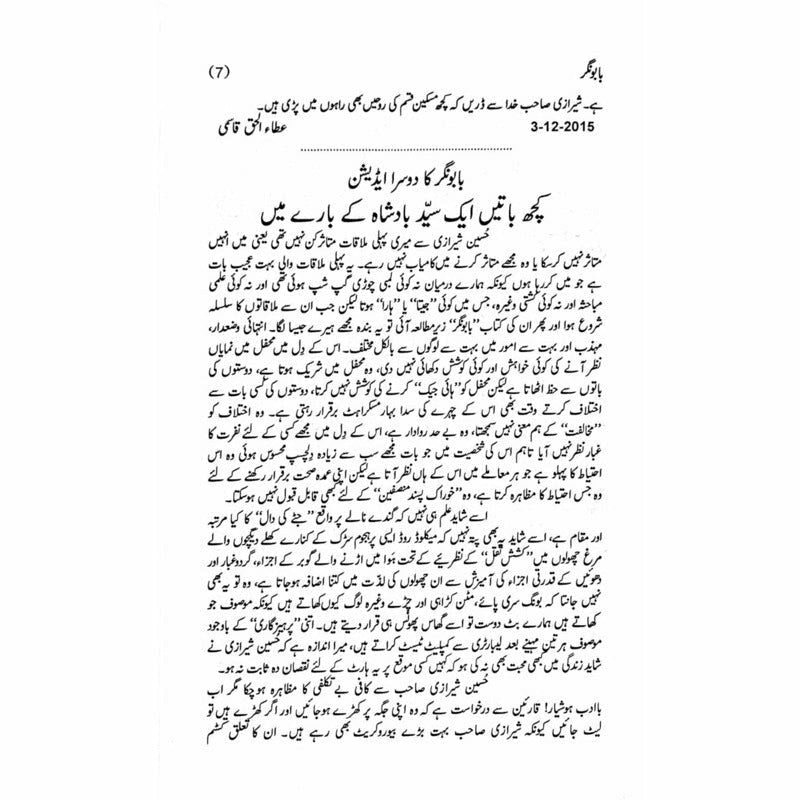 بابونگر (7)
ہے۔ شیرازی صاحب خدا سے ڈریں کہ کچھ مسکین قسم کی روحیں بھی راہوں میں پڑی ہیں۔
3-12-2015 عطاء الحق قاسمی
بابونگر کا دوسرا ایڈیشن
کچھ باتیں ایک سیّد بادشاہ کے بارے میں
حُسین شیرازی سے میری پہلی ملاقات متاثر کن نہیں تھی یعنی میں انہیں
متاثر نہیں کر سکا یا وہ مجھے متاثر کرنے میں کامیاب نہیں رہے۔ یہ پہلی ملاقات والی بہت عجیب بات
ہے جو میں کر رہا ہوں کیونکہ ہمارے درمیان نہ کوئی لمبی چوڑی گپ شپ ہوئی تھی اور نہ کوئی علمی
مباحثہ اور نہ کوئی کشتی وغیرہ، جس میں کوئی ”جیتا“ یا ”ہارا“ ہوتا لیکن جب ان سے ملاقاتوں کا سلسلہ
شروع ہوا اور پھر ان کی کتاب ”بابونگر“ زیرِ مطالعہ آئی تو یہ بندہ مجھے ہیرے جیسا لگا۔ انتہائی وضعدار،
مہذب اور بہت سے امور میں بہت سے لوگوں سے بالکل مختلف۔ اس کے دِل میں محفل میں نمایاں
نظر آنے کی کوئی خواہش اور کوئی کوشش دکھائی نہیں دی، وہ محفل میں شریک ہوتا ہے، دوستوں کی
باتوں سے حظ اٹھاتا ہے لیکن محفل کو ”ہائی جیک“ کرنے کی کوشش نہیں کرتا، دوستوں کی کسی بات سے
اختلاف کرتے وقت بھی اس کے چہرے کی سدا بہار مسکراہٹ برقرار رہتی ہے۔ وہ اختلاف کو
”مخالفت“ کے ہم معنی نہیں سمجھتا، وہ بے حد روادار ہے، اس کے دِل میں مجھے کسی کے لئے نفرت کا
غبار نظر نہیں آیا تاہم اس کی شخصیت میں جو بات مجھے سب سے زیادہ دلچسپ محسوس ہوئی وہ اس
احتیاط کا پہلو ہے جو ہر معاملے میں اس کے ہاں نظر آتا ہے لیکن اپنی عمدہ صحت برقرار رکھنے کے لئے
وہ جس احتیاط کا مظاہرہ کرتا ہے، وہ ”خوراک پسند منصفین“ کے لئے کبھی قابل قبول نہیں ہو سکتا۔
اسے شاید علم ہی نہیں کہ گندے نالے پر واقع ”جٹے کی دال“ کا کیا مرتبہ
اور مقام ہے، اسے شاید یہ بھی پتہ نہیں کہ میکلوڈ روڈ ایسی پر ہجوم سڑک کے کنارے کھلے دیگچوں والے
مرغ چھولوں میں ”کشش ثقل“ کے نظریئے کے تحت ہَوا میں اڑنے والے گوبر کے اجزاء، گرد و غبار اور
دھوئیں کے قدرتی اجزاء کی آمیزش سے ان چھولوں کی لذّت میں کتنا اضافہ ہو جاتا ہے، وہ تو یہ بھی
نہیں جانتا کہ بونگ سری پائے، مٹن کڑاہی اور چڑے وغیرہ لوگ کیوں کھاتے ہیں کیونکہ موصوف جو
کھاتے ہیں ہمارے بٹ دوست تو اسے گھاس پھونس ہی قرار دیتے ہیں۔ اتنی ”پرہیزگاری“ کے باوجود
موصوف ہر تین مہینے بعد لیبارٹری سے کمپلیٹ ٹیسٹ کراتے ہیں، میرا اندازہ ہے کہ حُسین شیرازی نے
شاید زندگی میں کبھی محبت بھی نہ کی ہو کہ کہیں کسی موقع پر یہ ہارٹ کے لئے نقصان دہ ثابت نہ ہو۔
حُسین شیرازی صاحب سے کافی بے تکلفی کا مظاہرہ ہو چکا مگر اب
با ادب ہوشیار! قارئین سے درخواست ہے کہ وہ اپنی جگہ پر کھڑے ہو جائیں اور اگر کھڑے ہیں تو
لیٹ جائیں کیونکہ شیرازی صاحب بہت بڑے بیوروکریٹ بھی رہے ہیں۔ ان کا تعلق کسٹم